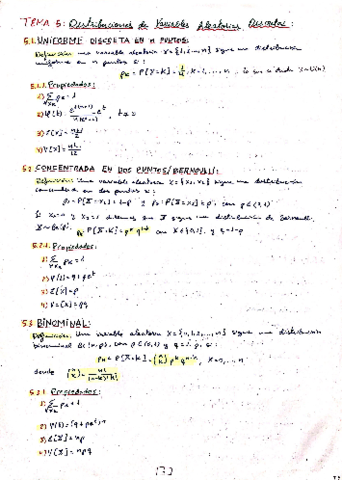 TEMA 5: Distribuciones de Variables Aleatorias Discretas:
5.1. UNIFORME DISCRETA EN n PUNTOS:
Definición: una variable aleatoria X={1,2,...,n} sigue una distribución
uniforme en n puntos si:
pₖ = P[X=k] = 1/n, k=1,...,n
5.1.1. Propiedades:
1) Σ pₖ=1
2)
3) E[X]=
4) V[X]=
5.2. CONCENTRADA EN DOS PUNTOS/BERNOULLI:
Definición: Una variable aleatoria X={x₁,x₂} sigue una distribución
concentrada en dos puntos si:
p₁=P[X=x₁]=1-p y p₂=P[X=x₂]=p, con p∈(0,1)
Si x₁=0 y x₂=1 diremos que X sigue una distribución de Bernoulli,
con k∈{0,1}, y q=1-p
5.2.1. Propiedades:
1) Σ pₖ=1
2) φ(t)=q+peᵗ
3) E[X]=p
4) V[X]=pq
5.3. BINOMINAL:
Definición: Una variable aleatoria X={0,1,2,...,n} sigue una distribución
binominal B(n,p), con p∈(0,1) y q=1-p, si:
pₖ=P[X=k]=(n k) pᵏ qⁿ⁻ᵏ, k=0,...,n
donde (n k)= n!/(n-k)!k!
5.3.1. Propiedades:
1) Σ pₖ=1
2) φ(t)=(q+peᵗ)ⁿ
3) E[X]=np
4) V[X]=npq